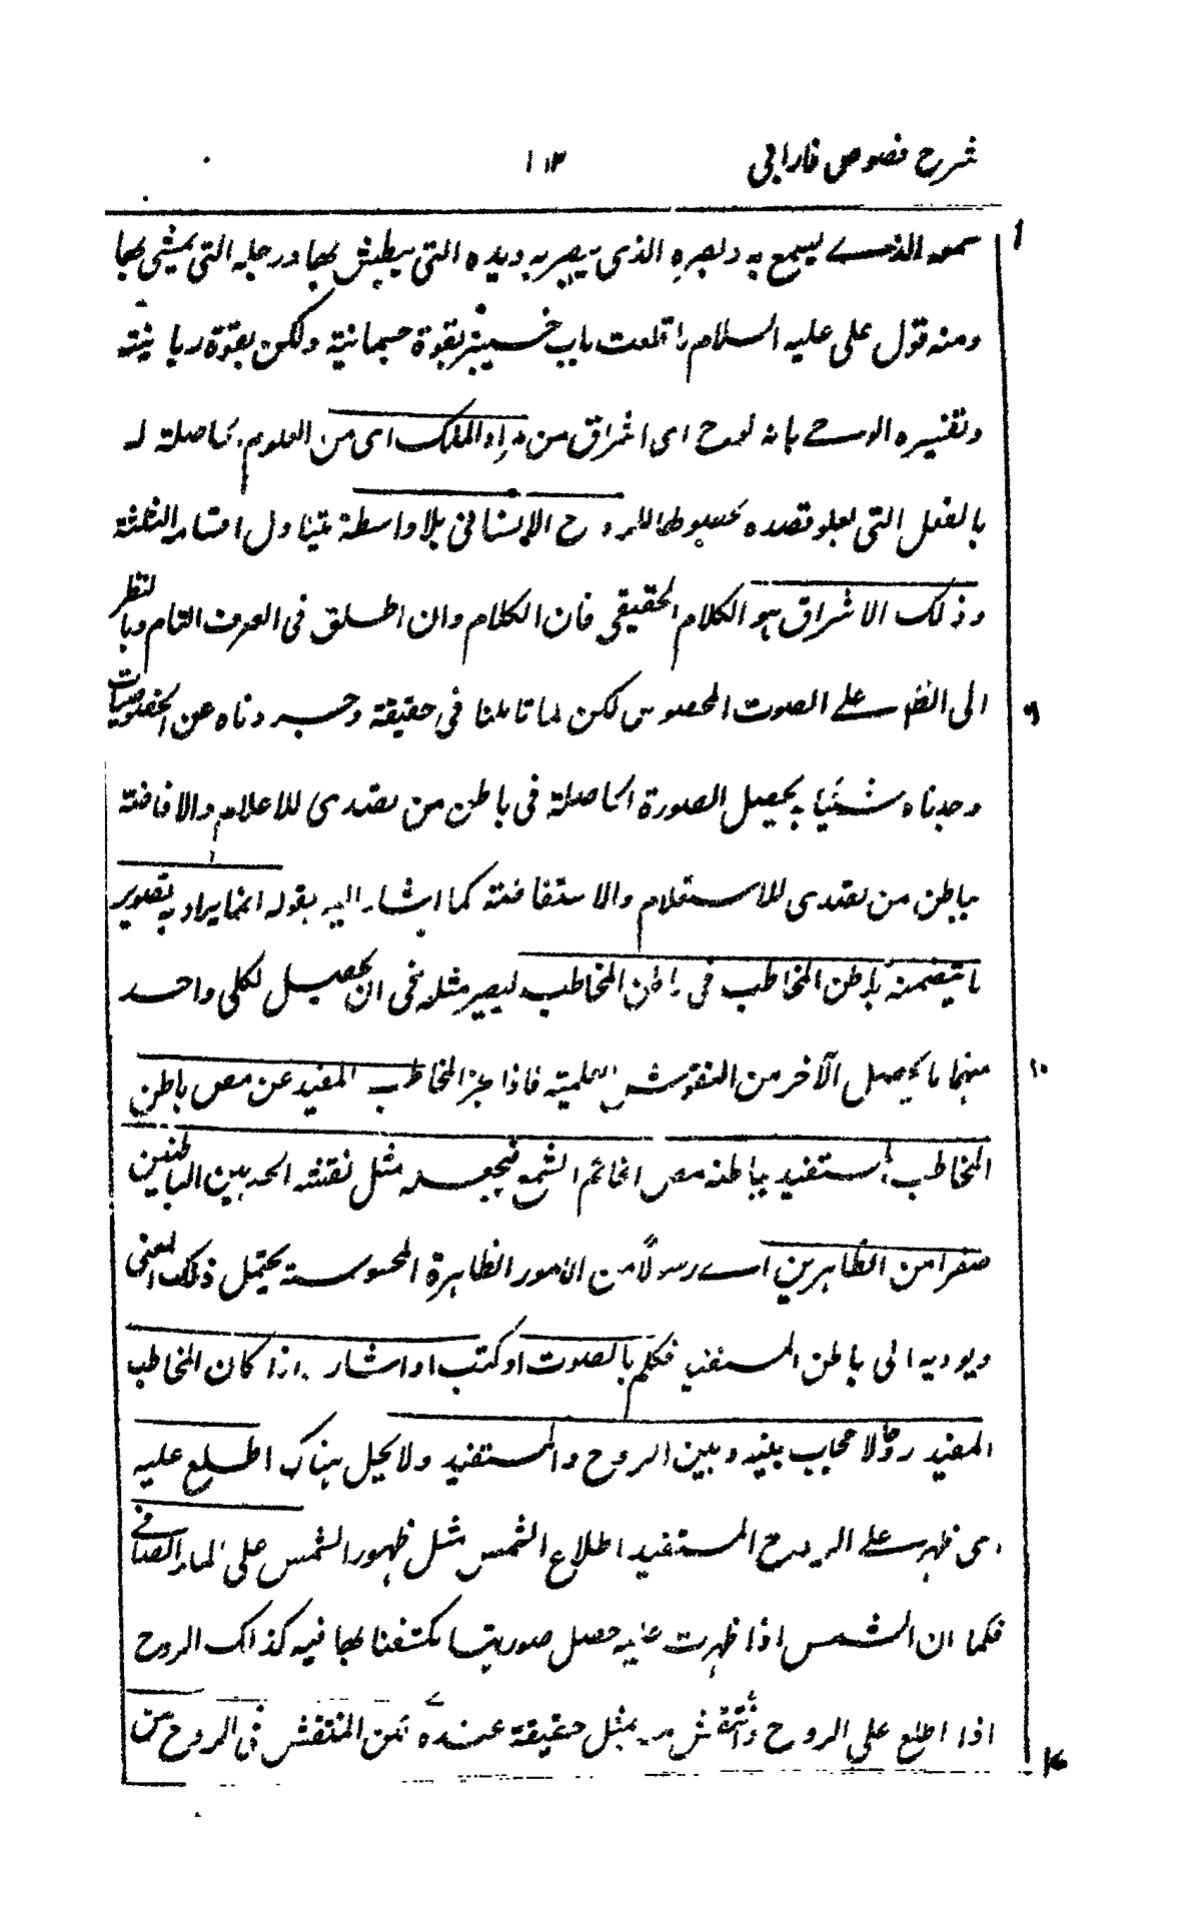 شرح فصوص فارابی ۱۱۳
سمعه الذے یسمع به وبصره الذی یبصر به ویده التی یبطش بها ورجله التی یمشی بها ۱
ومنه قول علی علیه السلام ما قلعت باب خیبر بقوة جسمانیة ولکن بقوة ربانیته
وتفسیره الوحے بانه لوح ای اشراق من مراد الملک ای من العلوم الحاصلة له
بالفعل التی تعلو قصده حصولها للروح الانسانی بلا واسطة یتناول اقسامه الثلثة
وذلک الاشراق هو الکلام الحقیقی فان الکلام وان اطلق فی العرف العام وبالنظر
الی الظاهر علے الصوت المخصوص لکن لما تاملنا فی حقیقة وجردناه عن الخصوصیات ۶
وجدناه شیئا به یحصل الصورة الحاصلة فی باطن من تصدی للاعلام والافاضة
بباطن من تصدی للاستعلام والاستفاضة کما اشار الیه بقوله انما یراد به تصویر
ما یتضمنه باطن المخاطب فی باطن المخاطب لیصیر مثله فی ان یحصل لکل واحد
منهما ما یحصل الآخر من النقوش العلمیته فاذا عجز المخاطب المفید عن مص باطن ۱۰
المخاطب المستفید بباطنه مص الخاتم الشمع فیجعله مثل نقشه اتحد بین الباطنین
سفرا من الظاهرین اے رسولاً من الامور الظاهرة المحسوسة یحتمل ذلک المعنی
ویودیه الی باطن المستفید فکلم بالصوت او کتب او اشار واذا کان المخاطب
المفید روحا لا حجاب بینه وبین الروح والمستفید ولا یحیل هناک اطلع علیه
ای ظهر علے الروح المستفید اطلاع الشمس مثل ظهور الشمس علی الماء الصافے
فکما ان الشمس اذا ظهرت علیه حصل صورتها مکتنفا بها فیه کذلک الروح
اذا اطلع علی الروح وانتقش من یمثل حقیقة عنده لکن المنتقش فی الروح من ۱۷